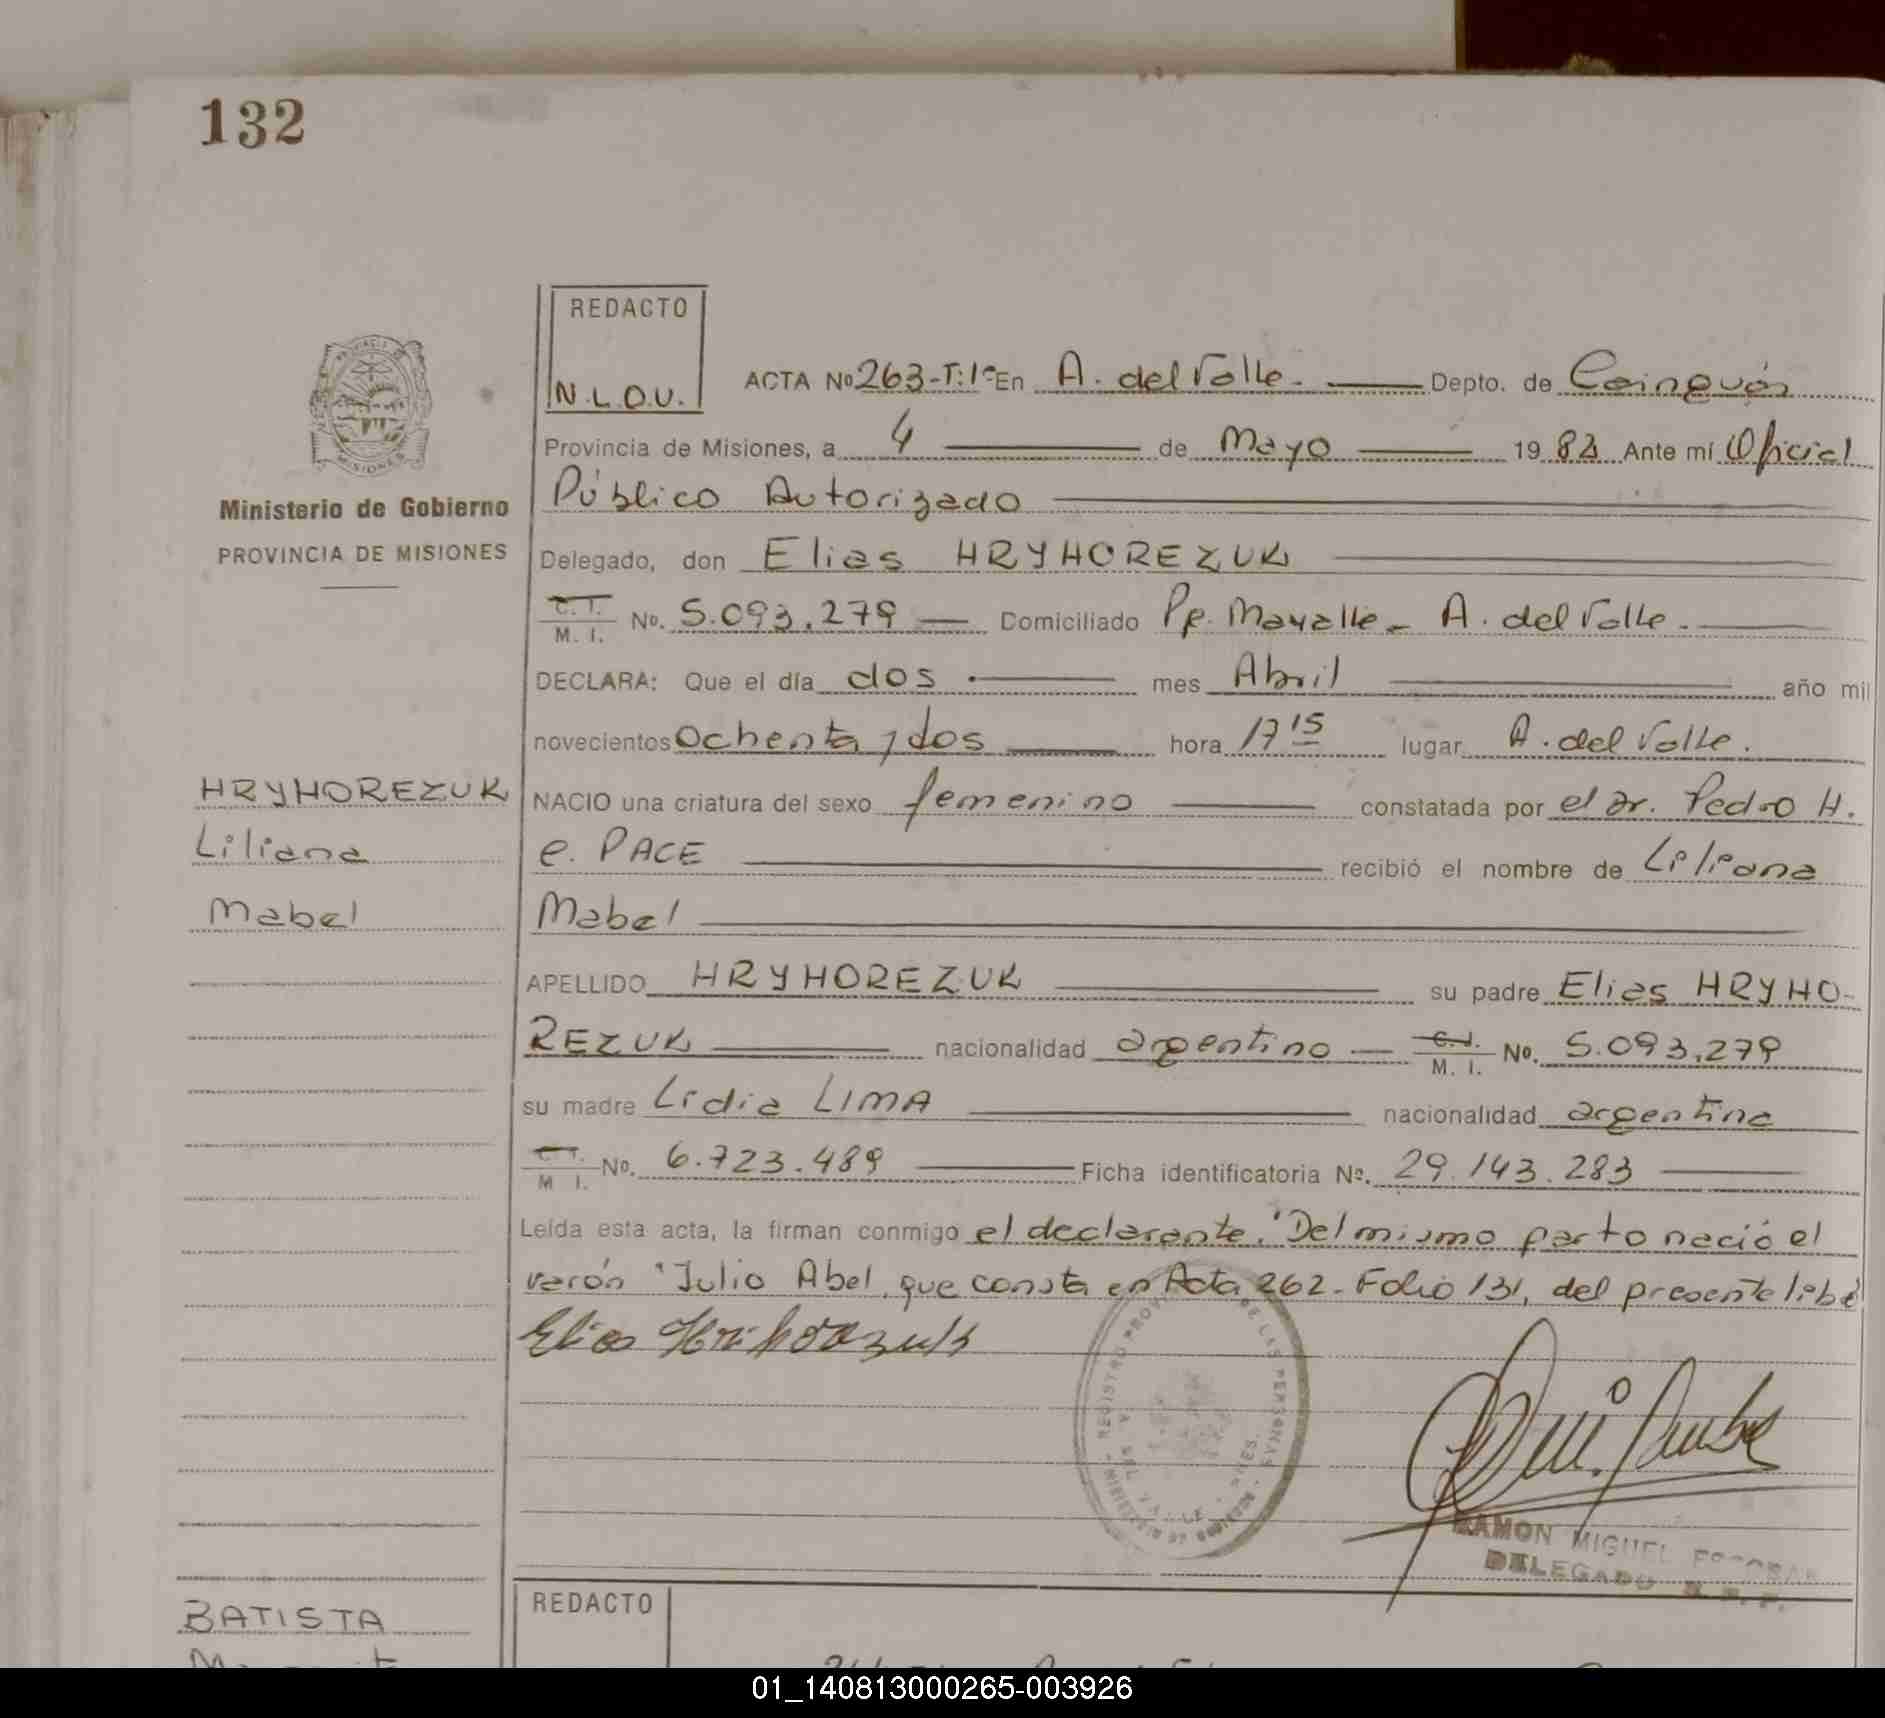 132
REDACTO
N.L.O.U.
ACTA Nº 263-T:1º En A. del Valle. Depto. de Cainguás
Provincia de Misiones, a 4 de Mayo 1982 Ante mí Oficial
Público Autorizado
Ministerio de Gobierno
PROVINCIA DE MISIONES
Delegado, don Elias HRYHOREZUK
C. I.
M. I. No. 5.093.279 Domiciliado Pp. Mayalle - A. del Valle.
DECLARA: Que el día dos mes Abril año mil
novecientos Ochenta y dos hora 17 15 lugar A. del Valle.
HRYHOREZUK
Liliana
Mabel
NACIO una criatura del sexo femenino constatada por el Dr. Pedro H.
e. PACE recibió el nombre de Liliana
Mabel
APELLIDO HRYHOREZUK su padre Elias HRYHO-
REZUK nacionalidad argentino C.I. M. I. No. 5.093.279
su madre Lidia LIMA nacionalidad argentina
C. I.
M I. No. 6.723.489 Ficha identificatoria Nº. 29.143.283
Leída esta acta, la firman conmigo el declarante. Del mismo parto nació el
varón "Julio Abel, que consta en Acta 262 - Folio 131, del presente
REGISTRO PROV DE LAS PERSONAS
RAMON MIGUEL ESCOBAR
DELEGADO
BATISTA
REDACTO
01_140813000265-003926